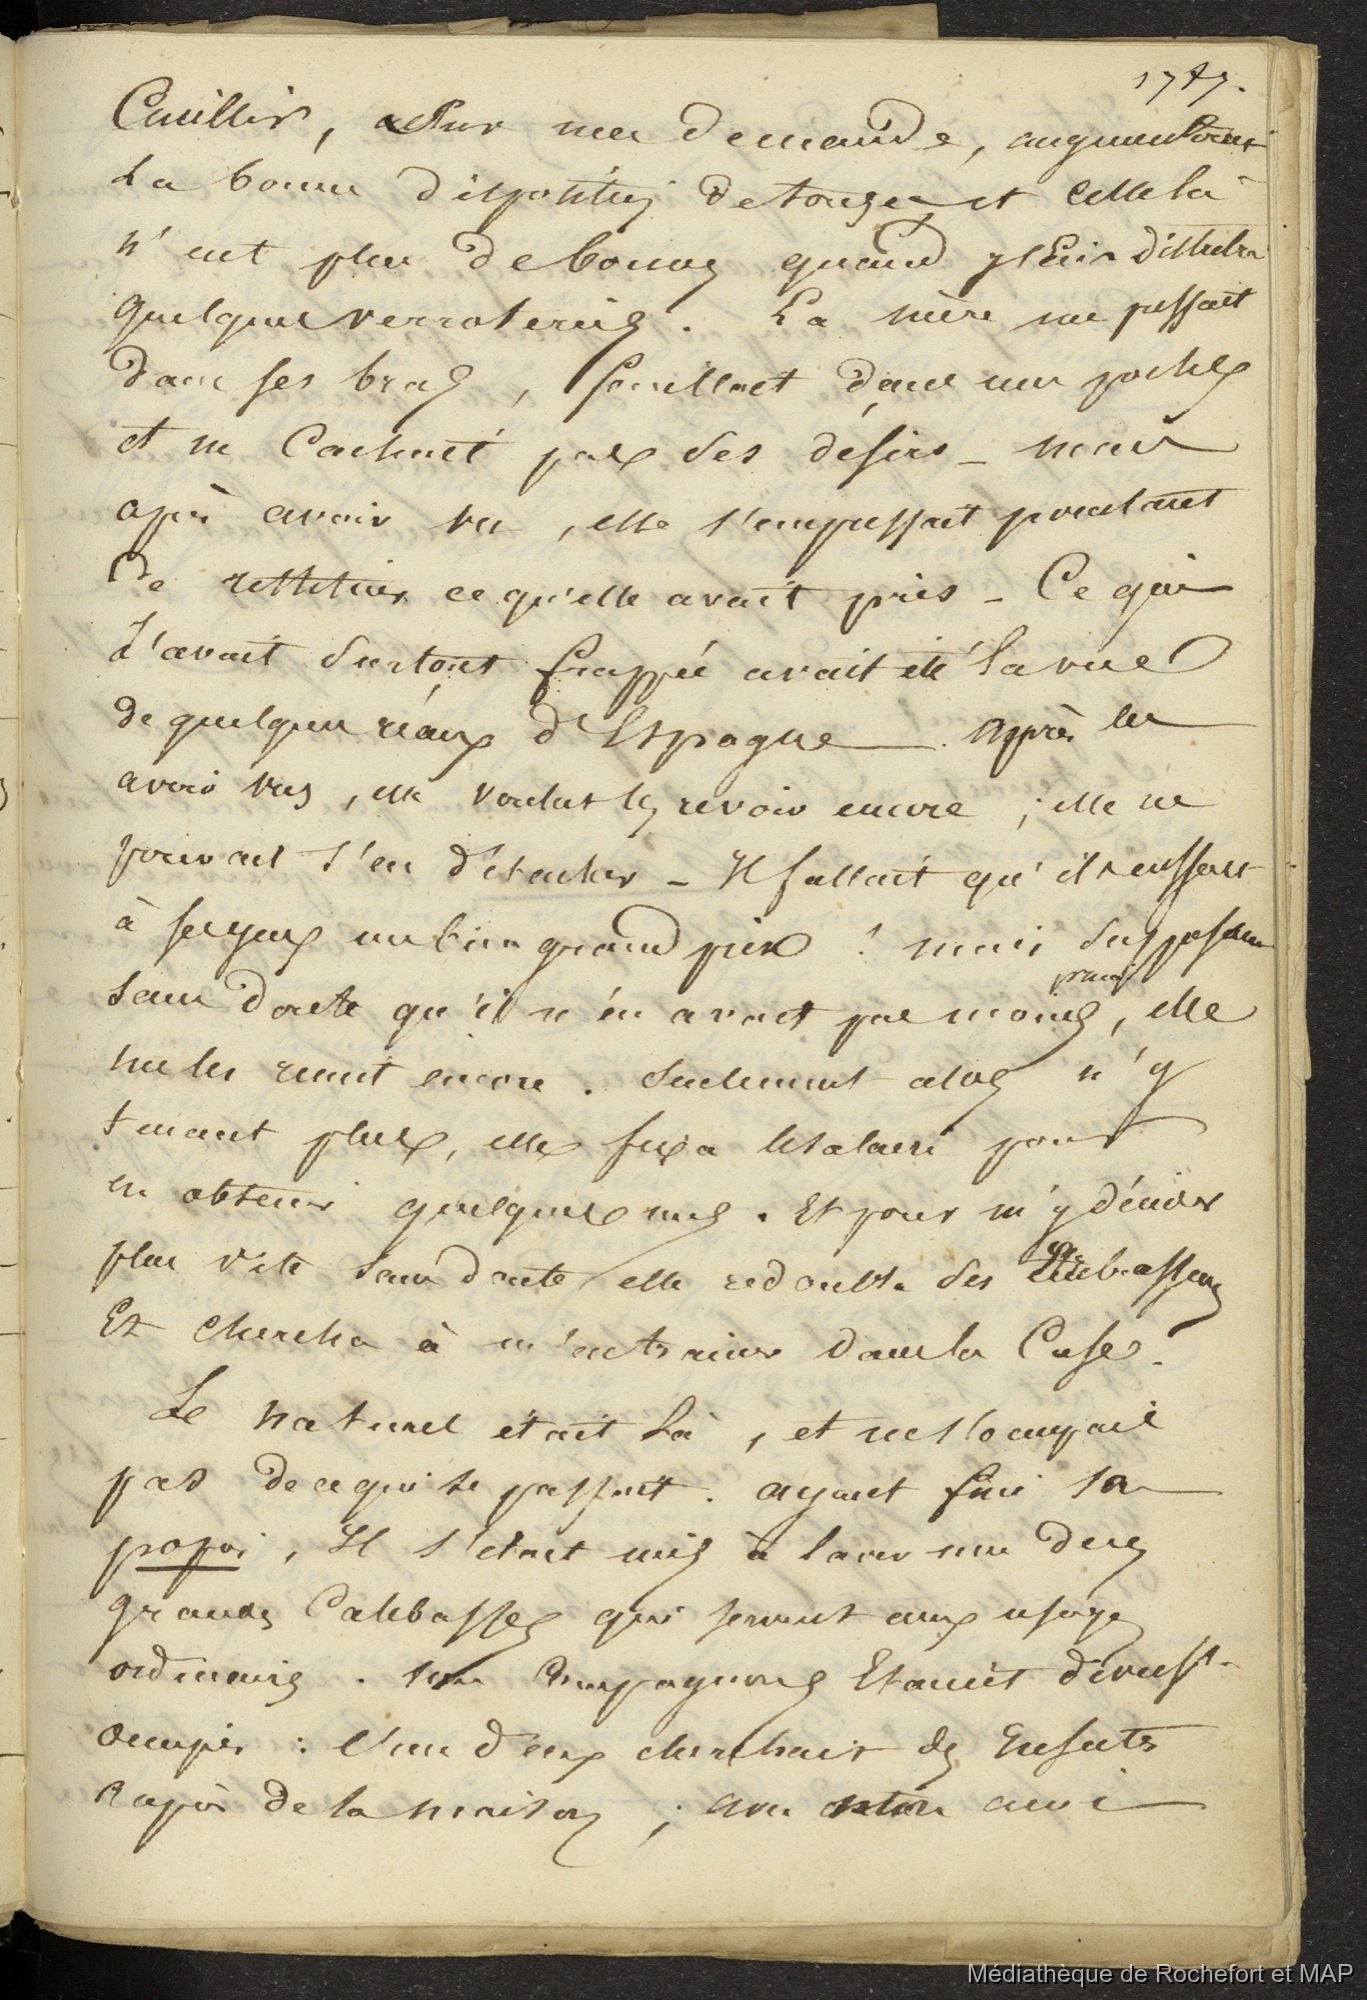 1747.
Cueillir, sur ma demande, augmentèrent
la bonne disposition de tous et celle là
n'eut plus de bornes quand j'eus distribué
quelques verroteries. La mère me pressait
dans ses bras, fouillait dans mes poches
et ne cachait pas ses désirs _ mais
après avoir vu, elle s'empressait pourtant
de restituer ce qu'elle avait pris _ Ce qui
l'avait surtout frappée avait été la vue
de quelques réaux d'Espagne. après les
avoir vus, elle voulut les revoir encore ; elle ne
pouvait s'en détacher _ Il fallait qu'ils eussent
à ses yeux un bien grand prix ! mais supposant
sans doute qu'il n'en avait pas moins
pour moi, elle
me les remit encore. Seulement alors n'y
tenant plus, elle fixa le salaire pour
en obtenir quelques uns. Et pour m'y décider
plus vite sans doute elle redoubla ses embrassements
Et chercha à m'entrainer dans la Case.
Le naturel était là, et ne s'occupait
pas de ce qui se passait. ayant fini sa
popoi, Il s'était mis à laver une des
grandes Calebasses qui servent aux usages
ordinaires. ses Compagnons Etaient diverst.
occupés : l'un d'eux cherchait des Enfants
auprès de la maison ; ami